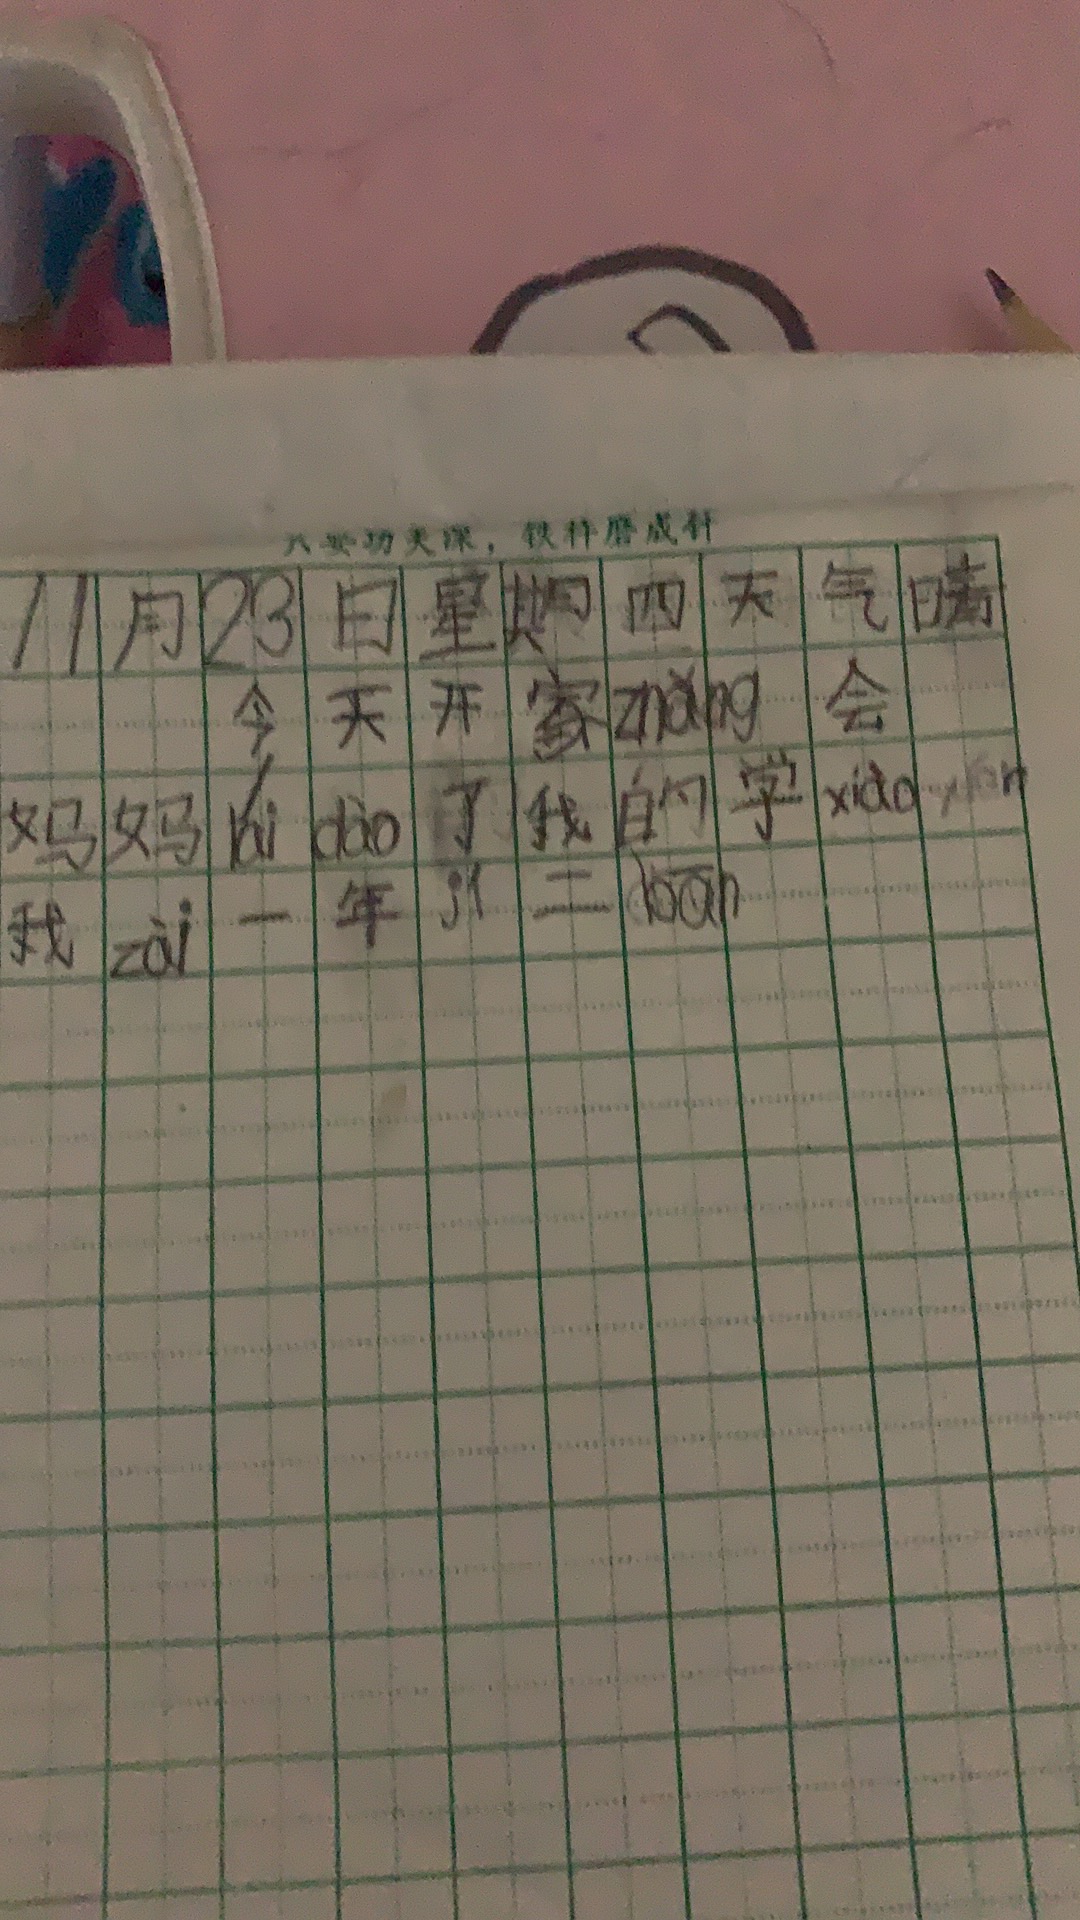 只要功夫深，铁杵磨成针
11月23日星期四天气晴
今天开家zhǎng会
妈妈lái dào了我的学xiào
我zài一年jí二bān